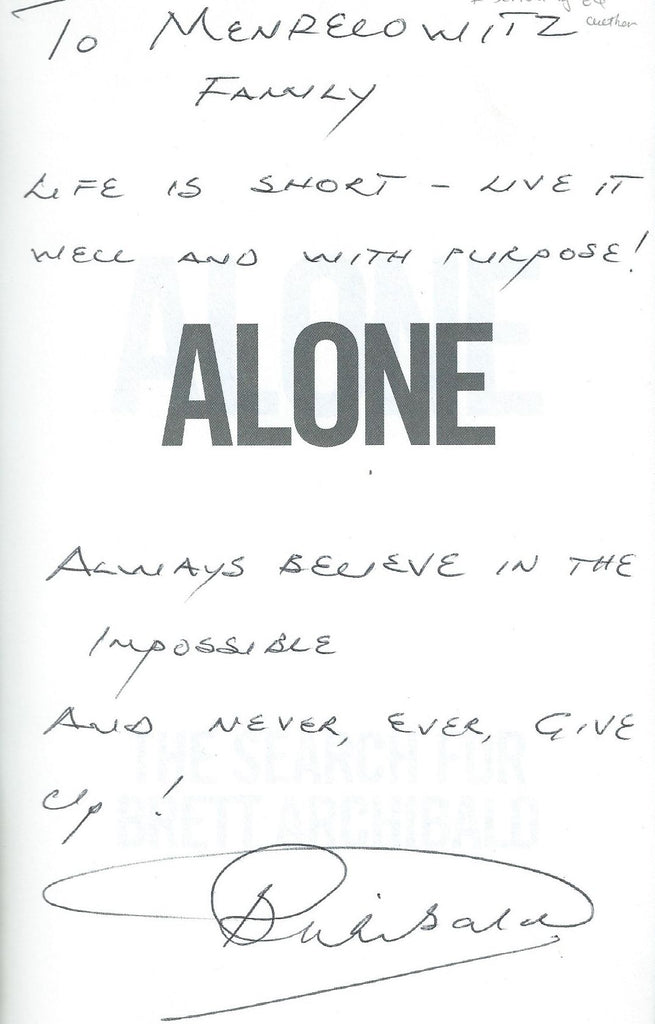 To MENDELOWITZ
FAMILY
LIFE IS SHORT - LIVE IT
WELL AND WITH PURPOSE!
ALONE
ALWAYS BELIEVE IN THE
IMPOSSIBLE
AND NEVER, EVER, GIVE
Up!
THE SEARCH FOR
BRETT ARCHIBALD